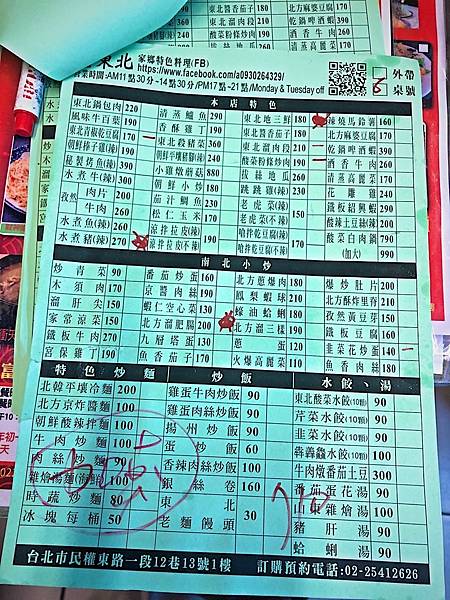 東北 家鄉特色料理(FB)
https://www.facebook.com/a0930264329/
營業時間:AM11點30分~14點30分/PM17點~21點/Monday & Tuesday off
外帶
桌號
本店特色
東北鍋包肉 220
風味牛百葉 190
東北青椒乾豆腐 170
朝鮮捧子雞(辣) 190
秘製烤魚(辣) 390
水煮牛(辣) 300
孜然 肉片 200
牛肉 260
水煮魚(辣) 260
水煮豬(辣) 270
清蒸鱸魚 290
香酥雞丁 190
東北殺豬菜 360
朝鮮牛壞豬鍋(辣) 240
小雞燉蘑菇 880
朝鮮小炒 180
茄汁鯛魚 230
松仁玉米 170
涼拌拉皮(辣)
涼拌拉皮(不辣) 190
東北地三鮮 180
東北醬茄子 180
東北溜肉段 210
酸菜粉條炒肉 190
拔絲地瓜 260
跳跳雞(辣) 230
老虎菜(辣)
老虎菜(不辣) 150
嗆拌乾豆腐(辣)
嗆拌乾豆腐(不辣) 170
辣燒馬鈴薯 160
北方麻婆豆腐 170
乾鍋啤酒蝦 390
酒香牛肉 260
清蒸高麗菜 170
花雕雞 240
鐵板紹興蝦 290
酸辣土豆絲(辣) 200
酸菜白肉鍋 790
(加大) 990
南北小炒
炒青菜 90
木須肉 170
溜肝尖 150
家常涼菜 150
鐵板牛肉 270
宮保雞丁 190
番茄炒蛋 160
京醬肉絲 190
蝦仁空心菜 130
北方溜肥腸 200
九層塔蛋 130
魚香茄子 170
北方蔥爆肉 180
鳳梨蝦球 210
蠔油蛤蜊 180
北方溜三樣 190
蔥蛋 120
火爆高麗菜 110
爆炒肚片 200
北方酥炸里脊 210
孜然黃豆芽 150
鐵板豆腐 160
韭菜花炒蛋 140
魚香肉絲 180
特色炒麵
北韓平壤冷麵 200
北方京炸醬麵 100
朝鮮酸辣拌麵 100
牛肉炒麵 100
肉絲炒麵 90
雜燴湯麵(海鮮) 100
時蔬炒麵 80
冰塊每桶 50
炒飯
雞蛋牛肉炒飯 90
雞蛋肉絲炒飯 90
揚州炒飯 90
蛋炒飯 60
香辣肉絲炒飯 100
銀絲卷 160
東北
老麵饅頭 30
水餃、湯
東北酸菜水餃(10顆) 90
芹菜水餃(10顆) 90
韭菜水餃(10顆) 90
犇羴鱻水餃(10顆) 100
牛肉燉番茄土豆 300
番茄蛋花湯 90
山東雜燴湯 100
豬肝湯 90
蛤蜊湯 90
台北市民權東路一段12巷13號1樓 訂購預約電話:02-25412626